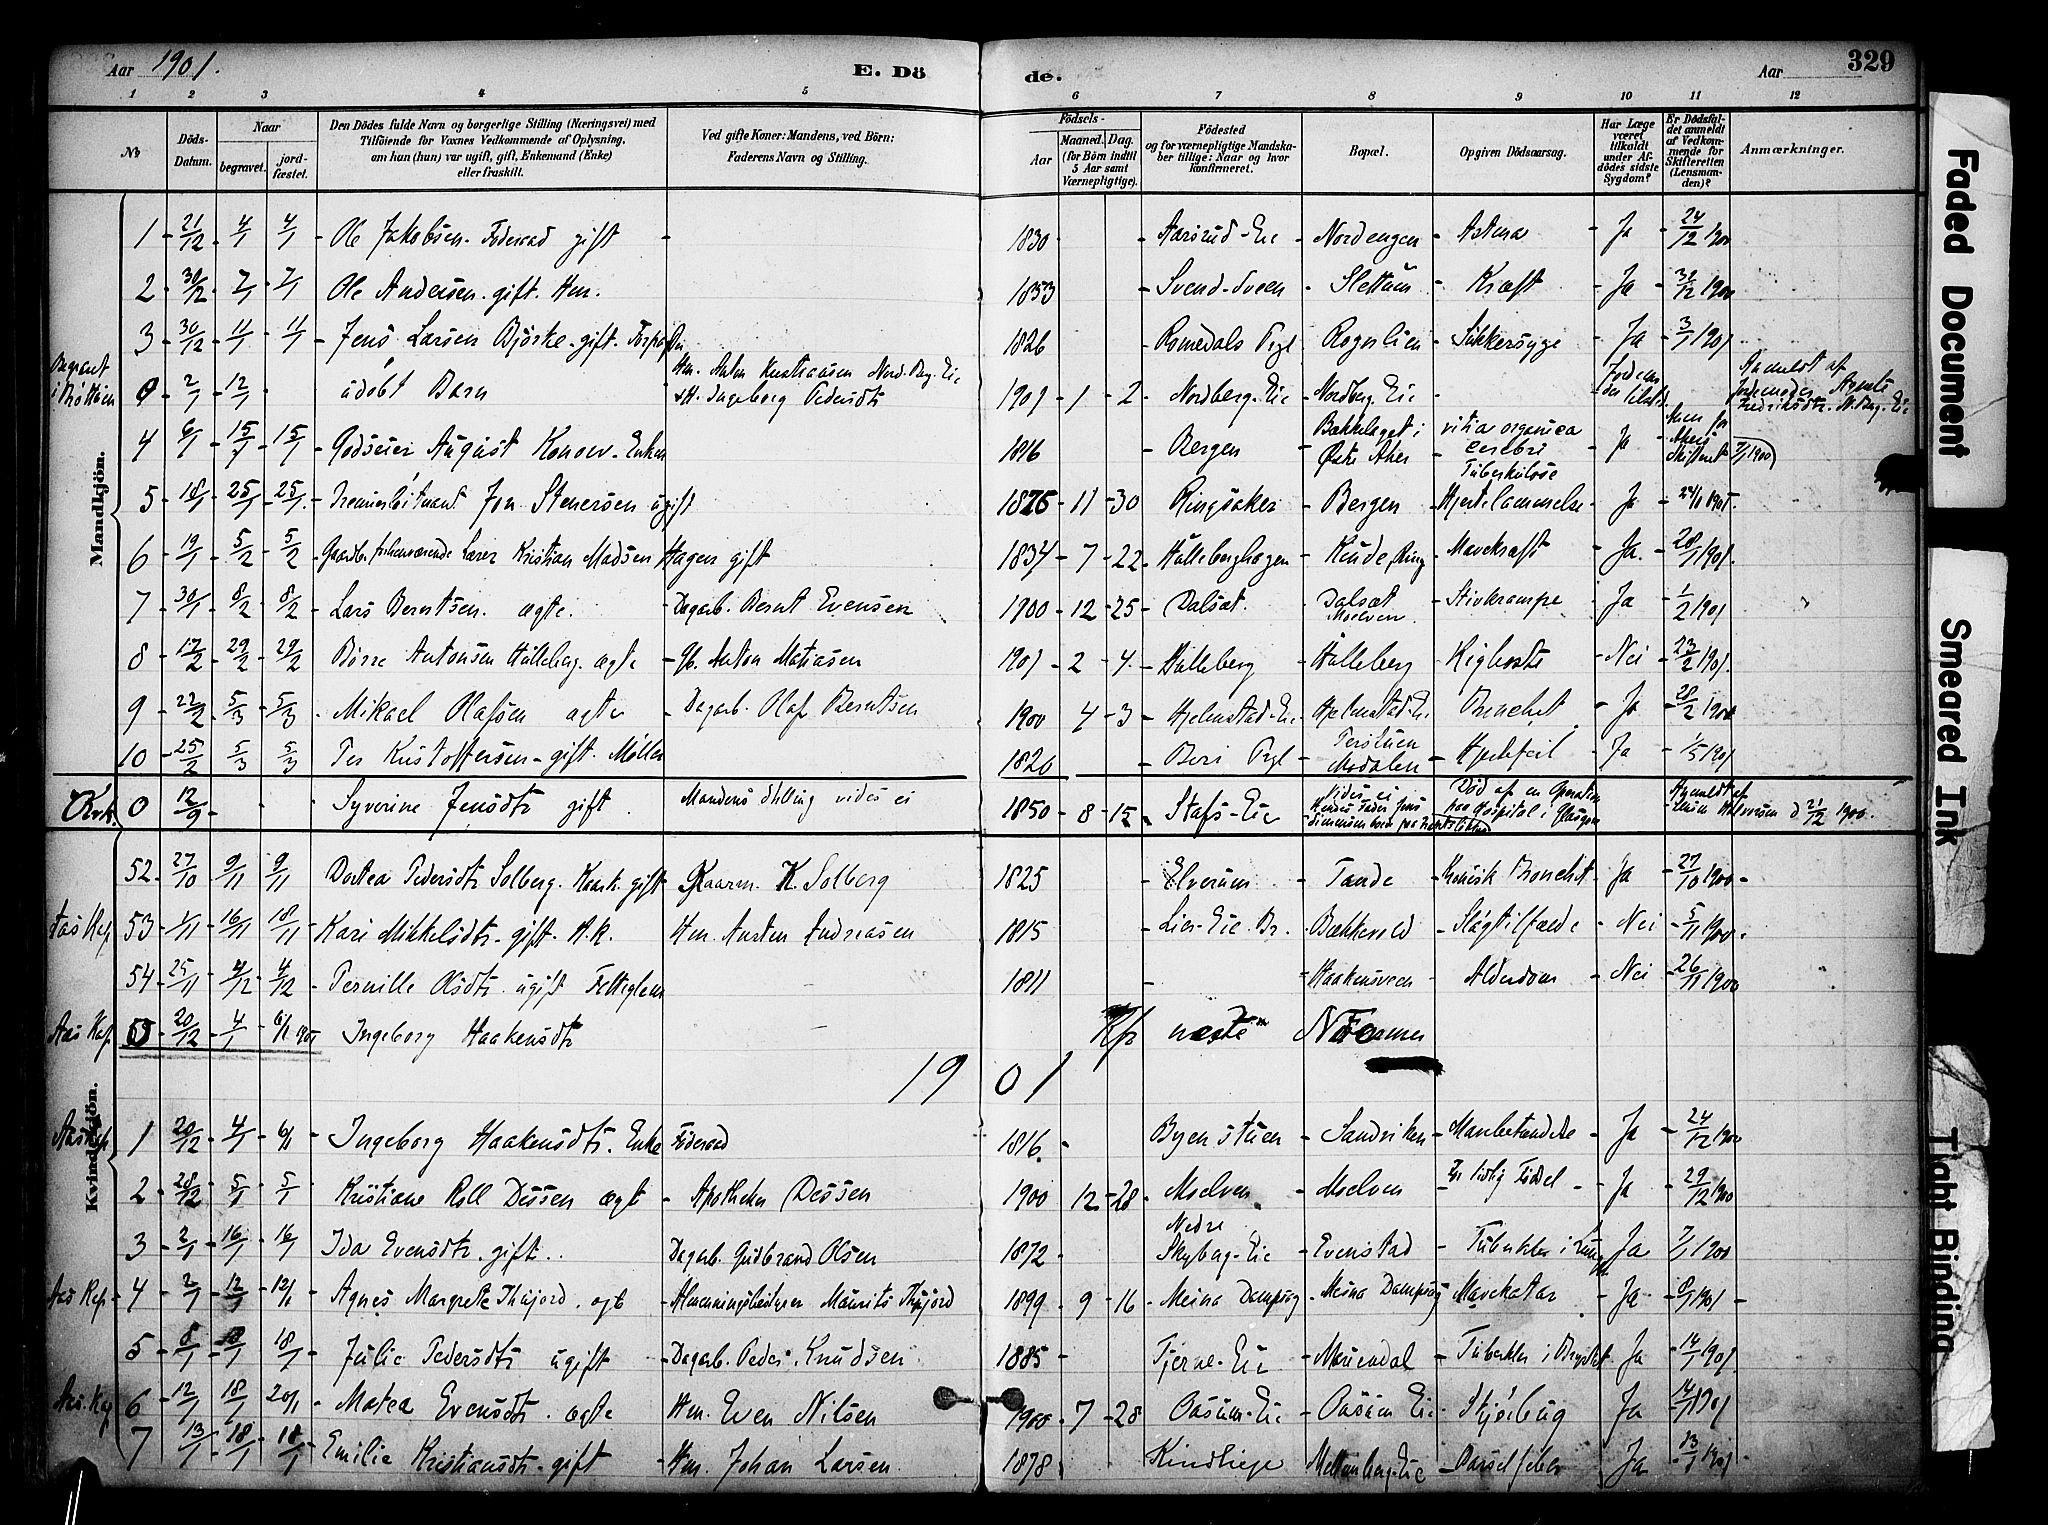 Aar 1901. E. Dö de. Aar 329
1 2 3 4 5 6 7 8 9 10 11 12
№ Döds-Datum. Naar begravet. jord-fæstet. Den Dödes fulde Navn og borgerlige Stilling (Næringsvei) med Tilföiende for Voxnes Vedkommende af Oplysning, om han (hun) var ugift, gift, Enkemand (Enke) eller fraskilt. Ved gifte Koner: Mandens, ved Börn: Faderens Navn og Stilling. Födsels- Aar Maaned. Dag. (for Börn indtil 5 Aar samt Værnepligtige). Födested og for værnepligtige Mandska-ber tillige: Naar og hvor konfirmeret. Bopæl. Opgiven Dödsaarsag. Har Læge været tilkaldt under Af-dödes sidste Sygdom? Er Dödsfal-det anmeldt af Vedkom-mende for Skifteretten (Lensman-den)? Anmærkninger.
Mandkjön.
1 21/12 4/1 4/1 Ole Jakobsen. Föderaad gift 1830 Aarsrud-Eie Nordengen Astma Ja 24/12 1900
2 30/12 7/1 7/1 Ole Andersen. gift. Hm. 1853 Svend-Sveen Slettum Kræft Ja 31/12 1900
3 30/12 11/1 11/1 Jens Larsen Björke. gift. 1826 Romedals Prgl Rogerlien Sukkersyge Ja 3/1 1901
0 2/1 12/1 udöbt Barn Hm. Anton Kristiansen Nord.Bg. Eie & H. Ingeborg Pedersdtr 1901 1 2 Nordberg. Eie Nordberg. Eie Anmeldt af Jordemoder
4 6/1 15/1 15/1 Godseier August Konow. Enkem 1816 Bergen Bækkelaget i Østre Aker vitia organica cerebri Ja
5 18/1 25/1 25/1 Jon Stenersen ugift 1876 11 30 Ringsaker Bergen Tuberkulose Hjertelammelse Ja 24/1 1901
6 19/1 5/2 5/2 Gaardb. forhenværende Lærer Kristian Madsen Hagen gift 1834 7 22 Hulleberghagen Ring Mavekræft Ja 28/1 1901.
7 30/1 8/2 8/2 Lars Berntsen. ægte. Dagarb. Bernt Evensen 1900 12 25 Dalsæt. Dalsæt Moelven Stivkrampe Ja 1/2 1901
8 17/2 29/2 29/2 Börre Antonsen Hulleberg. ægte Gb. Anton Matiasen 1901 2 4 Hulleberg Hulleberg Kighoste Nei 23/2 1901
9 22/2 5/3 5/3 Mikael Olafsen ægte Dagarb. Olaf Berntsen 1900 4 3 Hjelmstad-Eie Hjelmstad-Eie Bronchit Ja 28/2 1900
10 25/2 5/3 5/3 Per Kristoffersen - gift. Möller 1820 Biri Prgl Perstuen Modalen Hjertefeil Ja 1/3 1901
0 12/9 Syverine Jensdtr gift Mandens Stilling vides ei 1850 8 15 Stafs-Eie Vides ei Död af en Operation paa Hospital i Glasgow Anmeldt af Halvorsen d 21/12 1900.
Kvindekjön.
52 27/10 9/11 9/11 Dortea Pedersdtr Solberg. gift Kaarm. K. Solberg 1825 Elverum Tande Kronisk Bronchit Ja 27/10 1900
Aas Kap. 53 1/11 16/11 18/11 Kari Mikkelsdtr. gift. H.k. Hm. Austen Andreasen 1815 Lier-Eie. Br. Bækkevold Slagtilfælde Nei 5/11 1900
54 25/11 4/12 4/12 Pernille Olsdtr. ugift 1811 Haakensveen Alderdom Nei 26/11 1900
Aas Kap. 20/12 4/1 6/1 1901 Ingeborg Haakensdtr Kfr neste Nummer
1901
Aas Kap. 1 20/12 4/1 6/1 Ingeborg Haakensdtr. Enke Föderaad 1816. Byenstuen Sandviken Mavebetændelse Ja 24/12 1900
2 28/12 5/1 5/1 Kristiane Roll Dessen ægte Apotheker Dessen 1900 12 28 Moelven Moelven For tidlig Födsel Ja 29/12 1900
3 2/1 16/1 16/1 Ida Evensdtr. gift. Dagarb. Gudbrand Olsen 1872 Nedre Skyberg-Eie Evenstad Ja 7/1 1901
Aas Kap. 4 2/1 12/1 12/1 Agnes Margrete Thujord. ægte Almenningsbestyrer Maurits Thujord 1899 9 16 Meina Dampsag Meina Dampsag Mavekatar Ja 8/1 1901
5 8/1 18/1 18/1 Julie Pedersdtr ugift Dagarb. Peder Knudsen 1885 Tjerne-Eie Mariendal Tuberkler i Brystet Ja 14/1 1901
Aas. Kap 6 12/1 18/1 20/1 Matea Evensdtr. ægte Hm. Even Nilsen 1900 7 28 Aasum-Eie Aasum Eie Ja 14/1 1901
7 13/1 18/1 18/1 Emilie Kristiansdtr. gift Hm. Johan Larsen 1878 Kindlie Barselfeber Ja 13/1 1901
Faded Document
Smeared Ink
Tight Binding